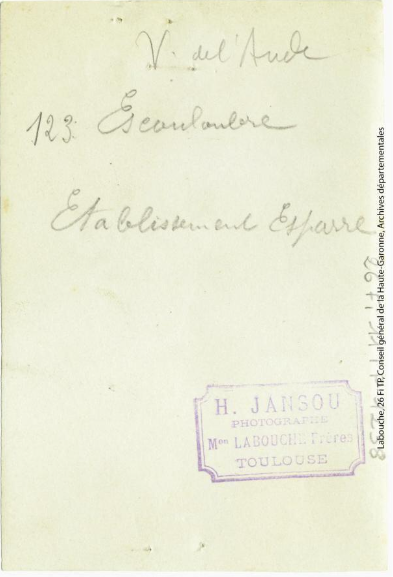 V. de l'Aude
123. Escouloubre
Etablissement Esparre
H. JANSOU
PHOTOGRAPHE
Mon LABOUCHE Frères
TOULOUSE
Labouche, 26 FI TP, Conseil général de la Haute-Garonne, Archives départementales